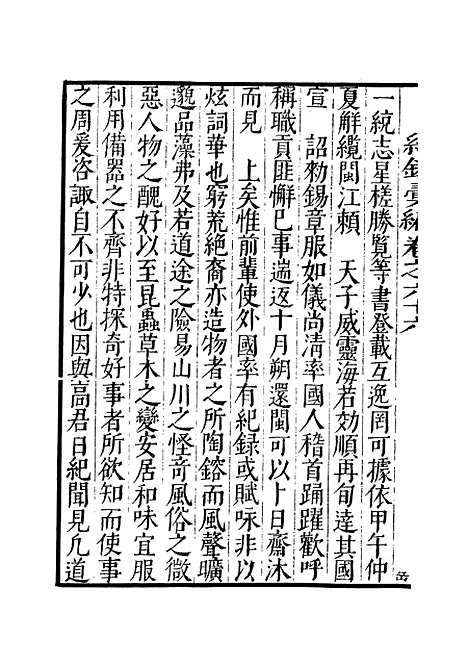 紀錄彙編卷之六十六
一統志星槎勝覧等書登載互逸罔可據依甲午仲
夏觧纜閩江頼　天子威靈海若効順再旬達其國
宣　詔勑錫章服如儀尚清率國人稽首踊躍歡呼
稱職貢匪懈巳事遄返十月朔還閩可以卜日齋沐
而見　上矣惟前軰使外國率有紀録或賦咏非以
炫詞華也窮荒絕裔亦造物者之所陶鎔而風聲曠
邈品藻弗及若道途之險易山川之怪竒風俗之微
惡人物之醜好以至昆蟲草木之變安居和味宜服
利用備器之不齊非特探奇好事者所欲知而使事
之周爰咨諏自不可少也因與高君日紀聞見凢道